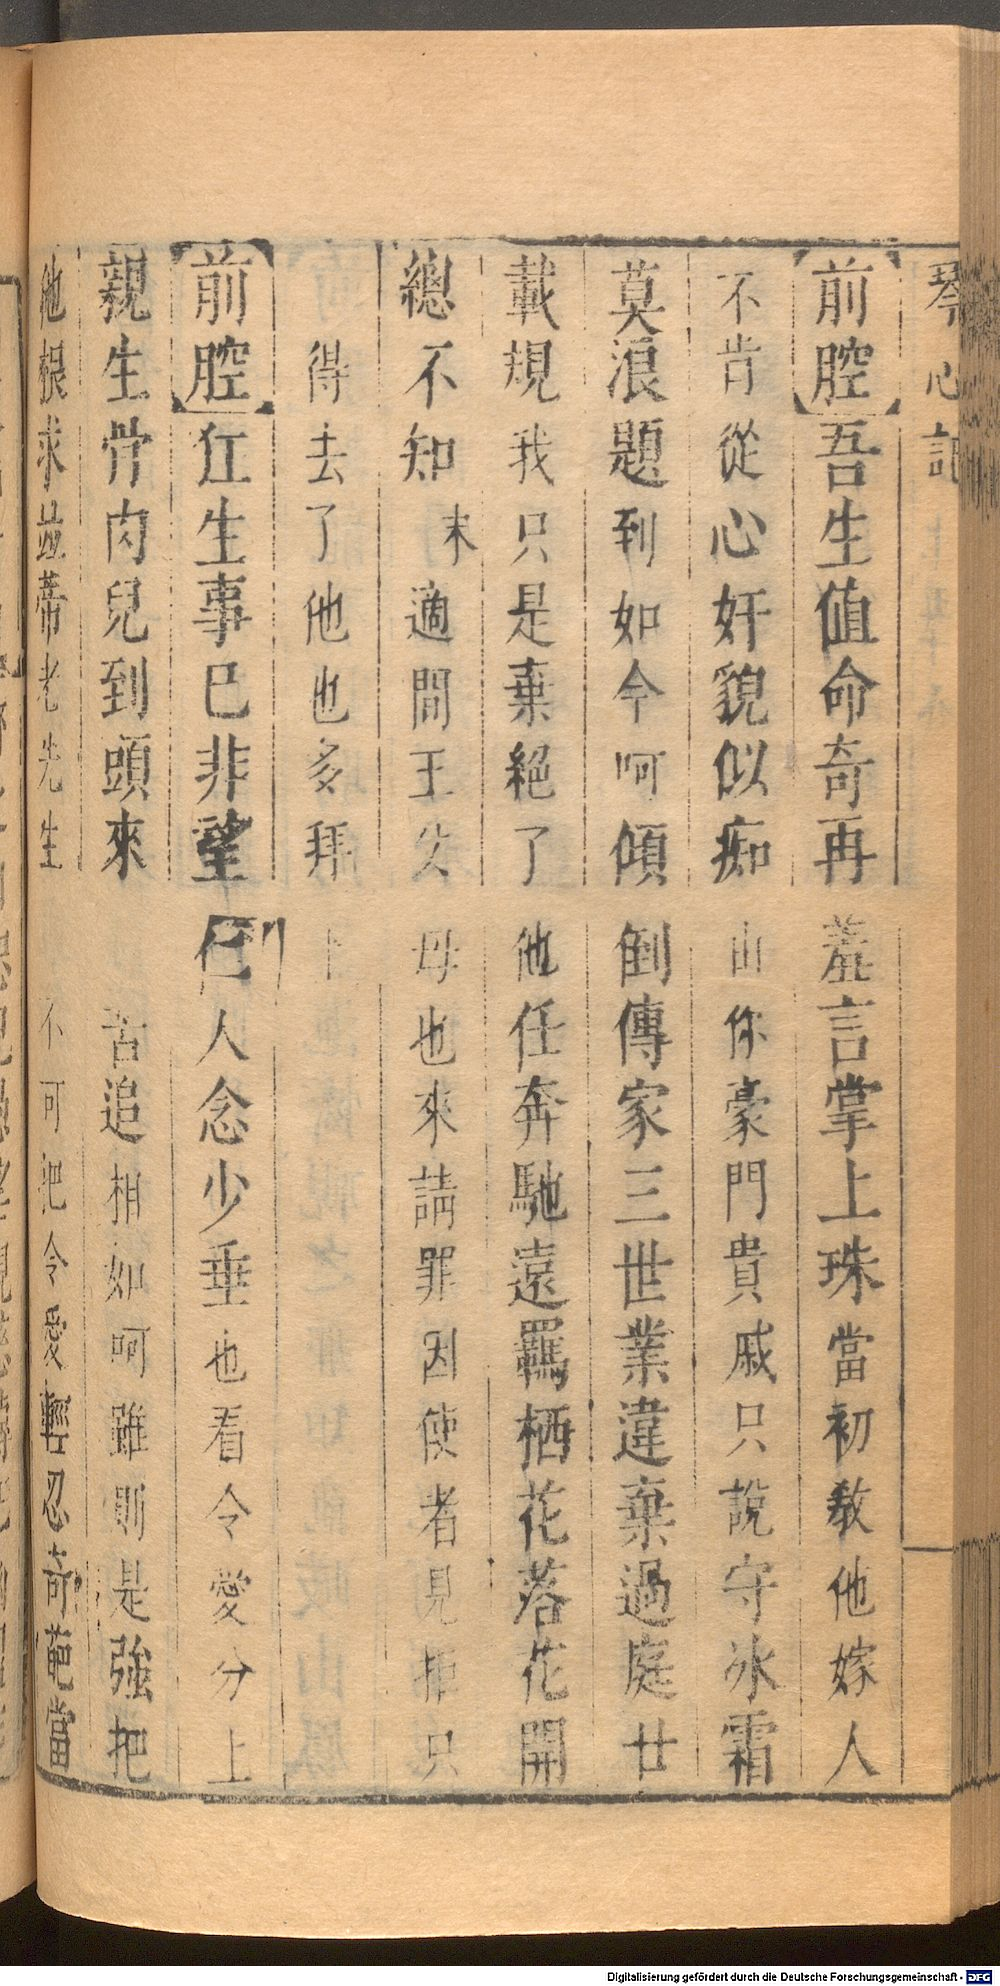 琴心記
【前腔】吾生值命奇再羞言掌上珠當初教他嫁人
不肯從心奸貌似痴山你豪門貴戚只說守冰霜
莫浪題到如今呵傾倒傳家三世業違棄過庭廿
載規我只是棄絕了他任奔馳遠羈栖花落花開
總不知末適間王父母也來請罪因使者見拒只
得去了他也多拜上
【前腔】狂生事已非望〖〗人念少垂也看令愛分上
親生骨肉兒到頭來苦追相如呵雖則是強把
他根求並蒂老先生不可把令愛輕忍奇葩當
Digitalisierung gefördert durch die Deutsche Forschungsgemeinschaft - DFG